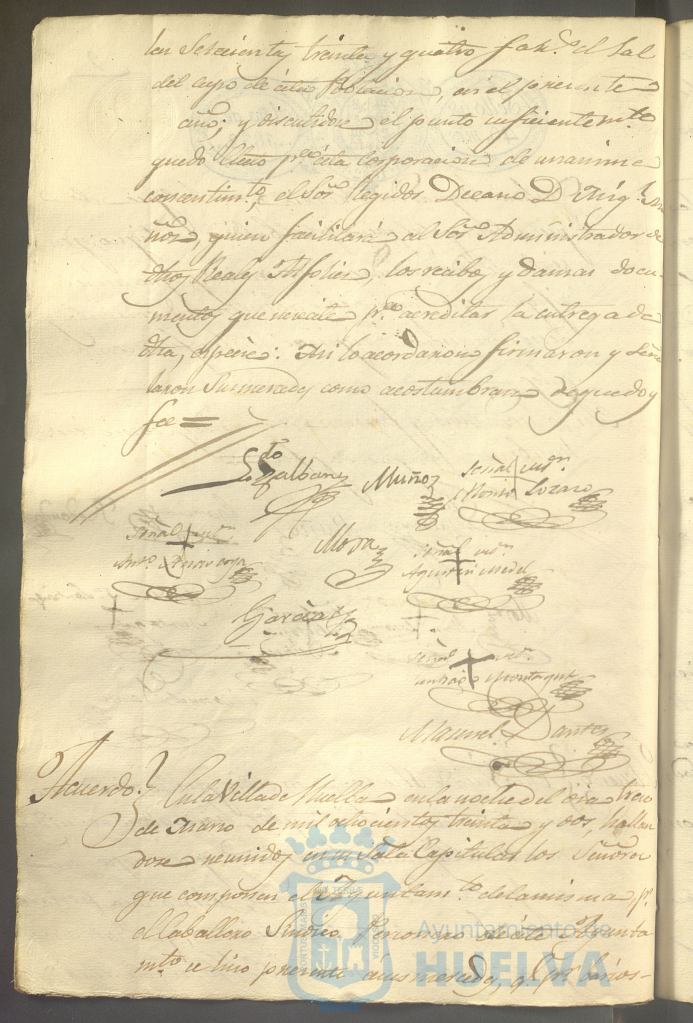 los Setecientos treinta y quatro fan.s de Sal
del cupo de esta Poblacion, en el presente
año; y discutidose el punto suficientem.te
quedó electo p.r esta Corporacion de unanime
consentim.to, el Sor. Regidor Decano D. Mig.l Mu
ñoz, quien facilitará al Sor. Administrador de
dhos Reales Alfolies, los recibos y demas docu-
mentos que necesite p.a acreditar la entrega de
dha, especie: Asi lo acordaron firmaron y seña
laron Sus mercedes como acostumbran, de que doy
fee =
Galban
Muñoz
Señal de
Alonso Lozano
Señal de
Mora
Señal de
Agustin Medel
Garcia
Señal de
Montagut
Manuel Dantes
Acuerdo.
En la Villa de Huelva en la noche del dia trece
de Marzo de mil ochocientos treinta y dos, hallan
dose reunidos en su Sala Capitular los Señores
que componen el Ayuntam.to de la misma p.r
el Caballero Sindico Personero de este Ayunta
m.to se hizo presente á sus mercedes, q.e p.r varios-
Ayuntamiento de
HUELVA